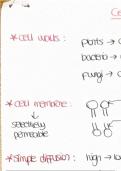 Ce
* cell walls : plants →
bacteria →
fungi →
* cell membrane :
↓
selectively
permeable
* simple diffusion : high → low